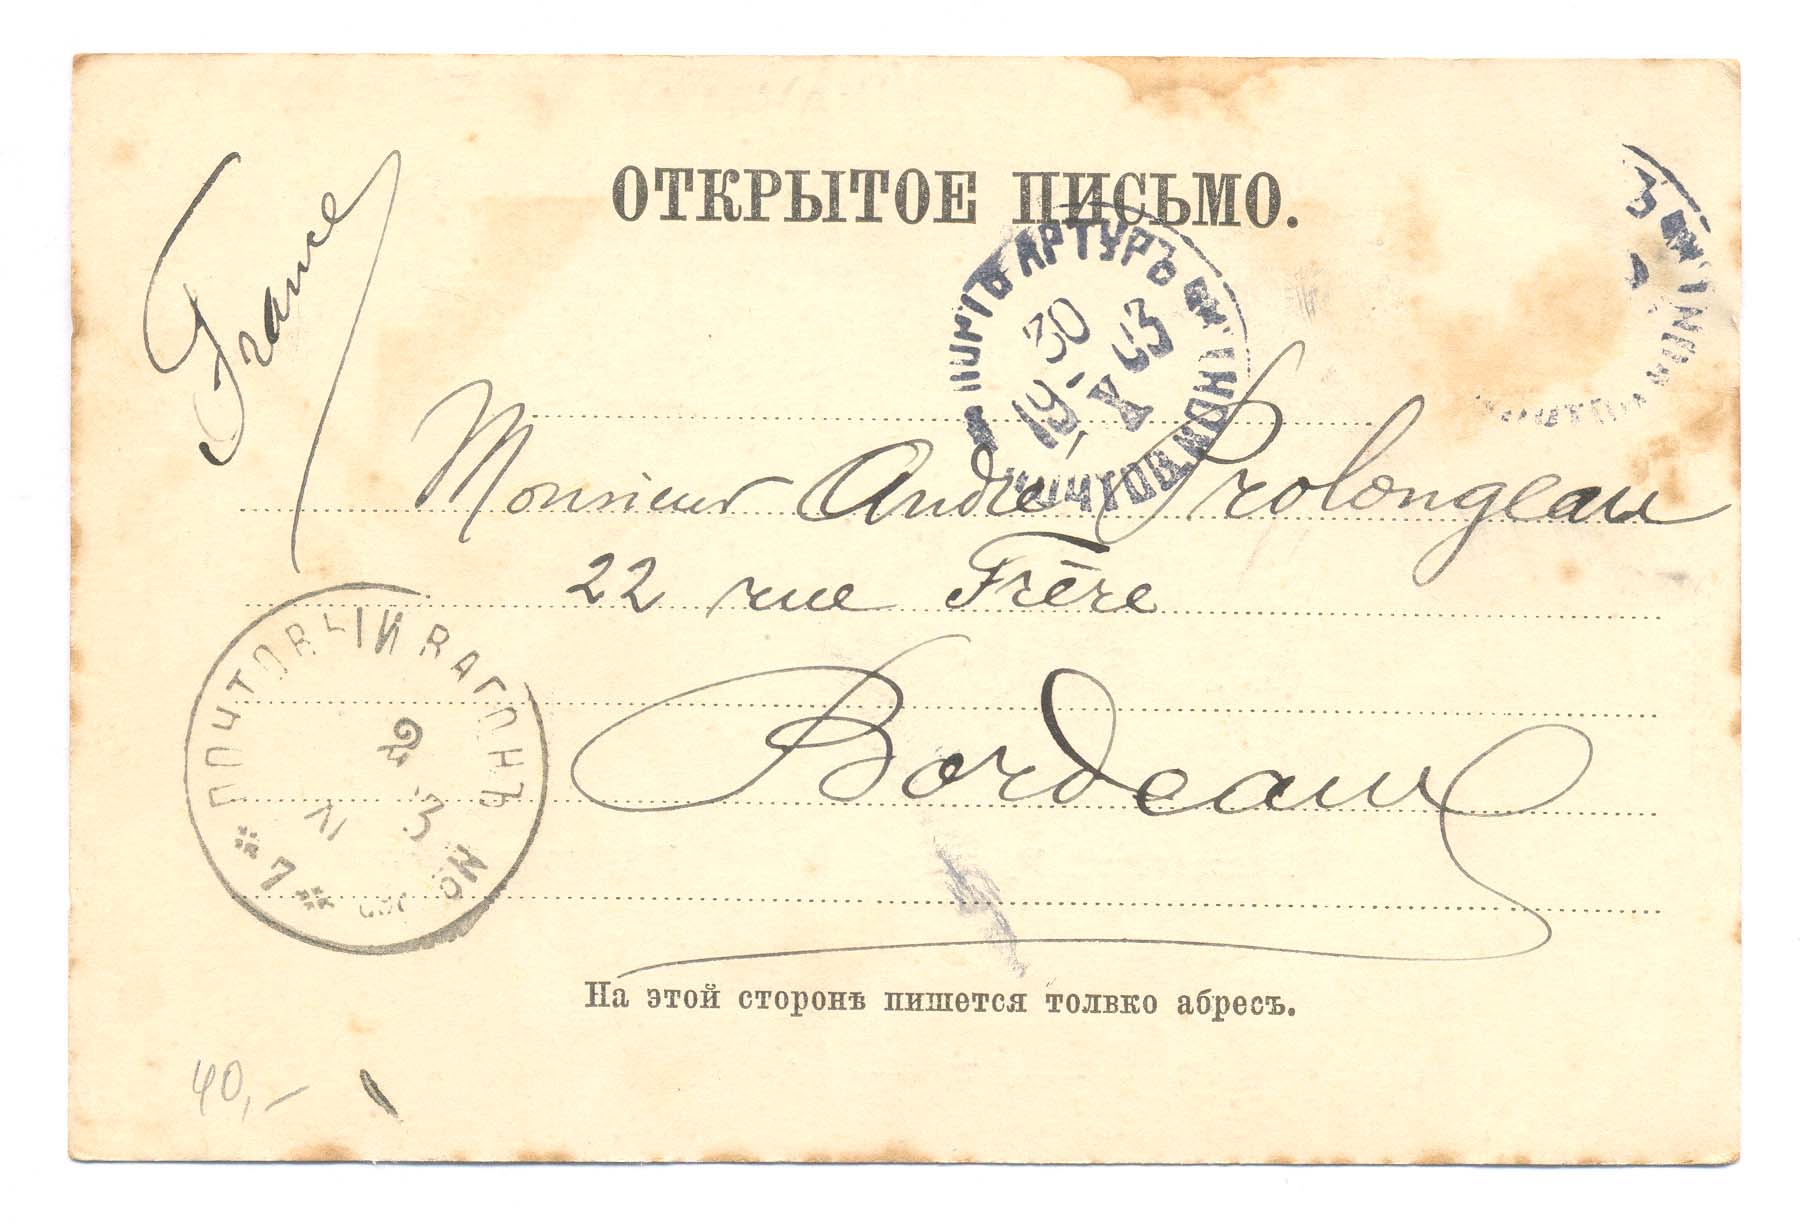 ОТКРЫТОЕ ПИСЬМО.
France
ПОРТЪ АРТУРЪ
30
X
1903
Monsieur André Prolongeau
22 rue Frère
Bordeaux
ПОЧТОВЫЙ ВАГОНЪ №
7
XI
На этой сторонѣ пишется толвко абресъ.
40,-